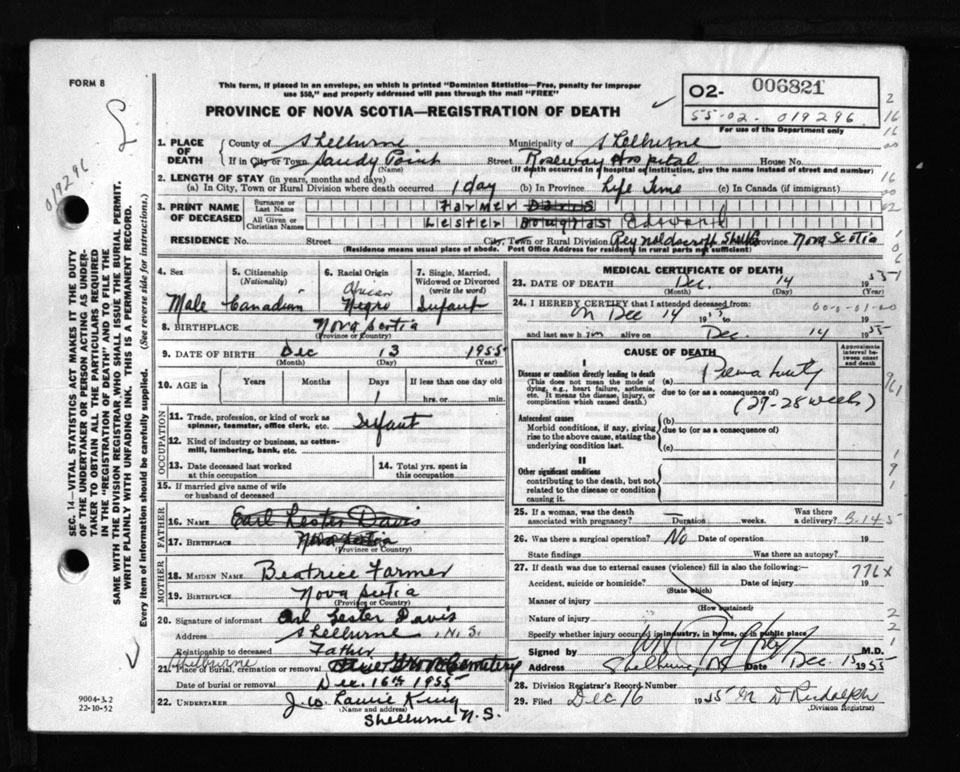 FORM 8
This form, if placed in an envelope, on which is printed "Dominion Statistics—Free, penalty for improper
use $50," and properly addressed will pass through the mail "FREE"
PROVINCE OF NOVA SCOTIA—REGISTRATION OF DEATH
02- 006821
55-02. 019296
For use of the Department only
019296
1. PLACE OF DEATH
County of Shelburne Municipality of Shelburne
If in City or Town Sandy Point Street Roseway Hospital House No.
(Name) (If death occurred in hospital or institution, give the name instead of street and number)
2. LENGTH OF STAY (in years, months and days)
(a) In City, Town or Rural Division where death occurred 1 day (b) In Province Life Time (c) In Canada (if immigrant)
3. PRINT NAME OF DECEASED
Surname or Last Name Farmer Davis
All Given or Christian Names Lester Douglas Edward
RESIDENCE No. Street City, Town or Rural Division Reynoldscroft Shelb Province Nova Scotia
(Residence means usual place of abode. Post Office Address for residents in rural parts not sufficient)
4. Sex Male
5. Citizenship (Nationality) Canadian
6. Racial Origin African Negro
7. Single, Married, Widowed or Divorced (write the word) Infant
8. BIRTHPLACE Nova Scotia
(Province or Country)
9. DATE OF BIRTH Dec 13 1955
(Month) (Day) (Year)
10. AGE in Years Months Days If less than one day old
hrs. or min.
OCCUPATION
11. Trade, profession, or kind of work as spinner, teamster, office clerk, etc. Infant
12. Kind of industry or business, as cotton-mill, lumbering, bank, etc.
13. Date deceased last worked at this occupation
14. Total yrs. spent in this occupation
15. If married give name of wife or husband of deceased
FATHER
16. NAME Earl Lester Davis
17. BIRTHPLACE Nova Scotia
(Province or Country)
MOTHER
18. MAIDEN NAME Beatrice Farmer
19. BIRTHPLACE Nova Scotia
(Province or Country)
20. Signature of informant Earl Lester Davis
Address Shelburne, N.S.
Relationship to deceased Father
Shelburne
21. Place of burial, cremation or removal Pine Grove Cemetery
Date of burial or removal Dec. 16th 1955
22. UNDERTAKER J. W. Laurie King
(Name and address)
Shelburne N.S.
MEDICAL CERTIFICATE OF DEATH
23. DATE OF DEATH Dec. 14 1955
(Month) (Day)
24. I HEREBY CERTIFY that I attended deceased from
on Dec 14 1955 to 19
and last saw him alive on Dec. 14 1955
CAUSE OF DEATH
Approximate interval between onset and death
I
Disease or condition directly leading to death
(This does not mean the mode of dying, e.g., heart failure, asthenia, etc. It means the disease, injury, or complication which caused death.)
(a) Prematurity
due to (or as a consequence of)
(27-28 weeks)
Antecedent causes
Morbid conditions, if any, giving rise to the above cause, stating the underlying condition last.
(b)
due to (or as a consequence of)
(c)
II
Other significant conditions
contributing to the death, but not related to the disease or condition causing it.
25. If a woman, was the death associated with pregnancy? Duration weeks. Was there a delivery?
26. Was there a surgical operation? No Date of operation 19
State findings Was there an autopsy?
27. If death was due to external causes (violence) fill in also the following:—
776x
Accident, suicide or homicide? Date of injury 19
(State which)
Manner of injury
(How sustained)
Nature of injury
Specify whether injury occurred in industry, in home, or in public place
Signed by M.D.
Address Shelburne, NS Date Dec. 15 1955
28. Division Registrar's Record Number
29. Filed Dec 16 1955 M D Rudolph
(Division Registrar)
SEC. 14—VITAL STATISTICS ACT MAKES IT THE DUTY
OF THE UNDERTAKER OR PERSON ACTING AS UNDER-
TAKER TO OBTAIN ALL THE PARTICULARS REQUIRED
IN THE "REGISTRATION OF DEATH" AND TO FILE THE
SAME WITH THE DIVISION REGISTRAR WHO SHALL ISSUE THE BURIAL PERMIT.
WRITE PLAINLY WITH UNFADING INK. THIS IS A PERMANENT RECORD.
Every item of information should be carefully supplied. (See reverse side for instructions.)
9004-3.2
22-10-52